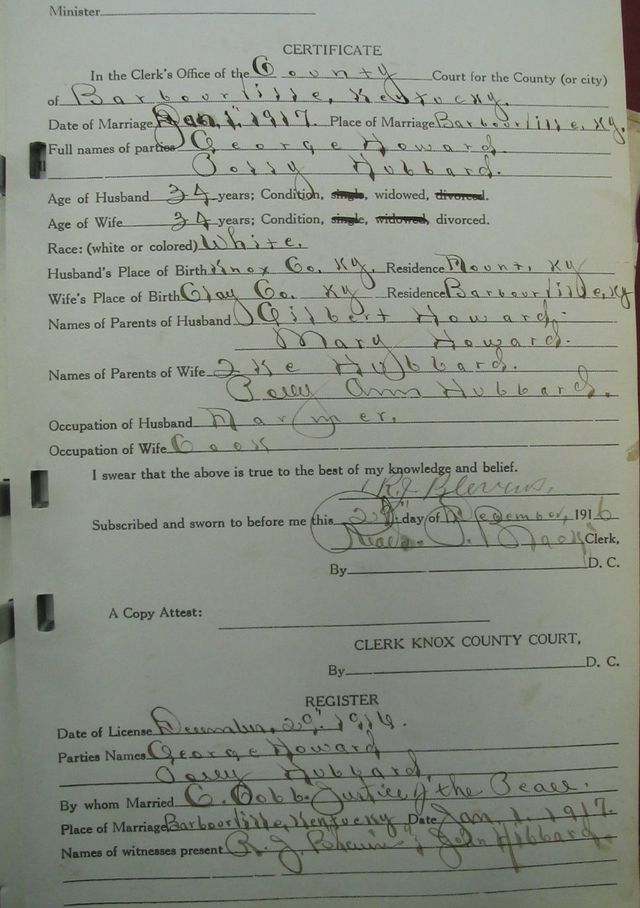 Minister
CERTIFICATE
In the Clerk's Office of the County Court for the County (or city)
of Barbourville, Kentucky.
Date of Marriage Jan, 1, 1917. Place of Marriage Barbourville, Ky.
Full names of parties George Howard.
Hubbard.
Age of Husband 34 years; Condition, single, widowed, divorced.
Age of Wife 34 years; Condition, single, widowed, divorced.
Race: (white or colored) White.
Husband's Place of Birth Knox Co. Ky. Residence Flount, Ky
Wife's Place of Birth Clay Co. Ky Residence Barbourville, Ky
Names of Parents of Husband Gilbert Howard.
Mary Howard.
Names of Parents of Wife Hubbard.
Ann Hubbard.
Occupation of Husband Farmer.
Occupation of Wife Cook
I swear that the above is true to the best of my knowledge and belief.
R.J. Blevins.
Subscribed and sworn to before me this 29" day of December, 1916
Read P. Black Clerk,
By D. C.
A Copy Attest:
CLERK KNOX COUNTY COURT,
By D. C.
REGISTER
Date of License December, 29" 1916.
Parties Names George Howard
Hubbard,
By whom Married C. Cobb. Justice of the Peace.
Place of Marriage Barbourville, Kentucky Date Jan, 1, 1917.
Names of witnesses present R. J. John Hibbard